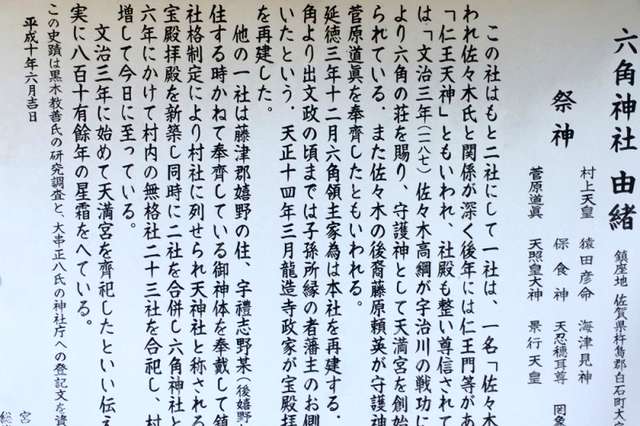 六角神社 由緒
鎮座地 佐賀県杵島郡白石町大
祭神
村上天皇 猿田彦命 海津見神
保食神 天忍穂耳尊 罔象
菅原道眞 天照皇大神 景行天皇
この社はもと二社にして一社は、一名「佐々木
われ佐々木氏と関係が深く後年には仁王門等があ
「仁王天神」ともいわれ、社殿も整い尊信されて
は「文治三年(一一八七)佐々木高綱が宇治川の戦功に
より六角の荘を賜り、守護神として天満宮を創始
られている。また佐々木の後裔藤原頼英が守護神
菅原道眞を奉齊したともいわれる。
延徳三年十二月六角領主家為は本社を再建する。
角より出文政の頃までは子孫所縁の者藩主のお側
いたという。天正十四年三月龍造寺政家が宝殿拝
を再建した。
他の一社は藤津郡嬉野の住、字禮志野某(後嬉野
住する時かねて奉齊している御神体を奉戴して鎮
社格制定により村社に列せられ天神社と称される
宝殿拝殿を新築し同時に二社を合併し六角神社と
六年にかけて村内の無格社二十三社を合祀し、村
増して今日に至っている。
文治三年に始めて天満宮を齊祀したといい伝え
実に八百十有餘年の星霜をへている。
この史蹟は黒木教善氏の研究調査と、大串正八氏の神社庁への登記文を資
平成十年六月吉日
宮
総